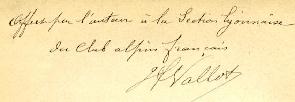 Offert par l'auteur à la Section Lyonnaise
du Club alpin français
J Vallot